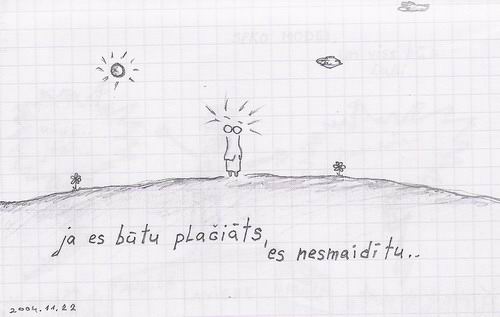 ja es būtu plačiāts,
es nesmaidītu..
2004.11.22